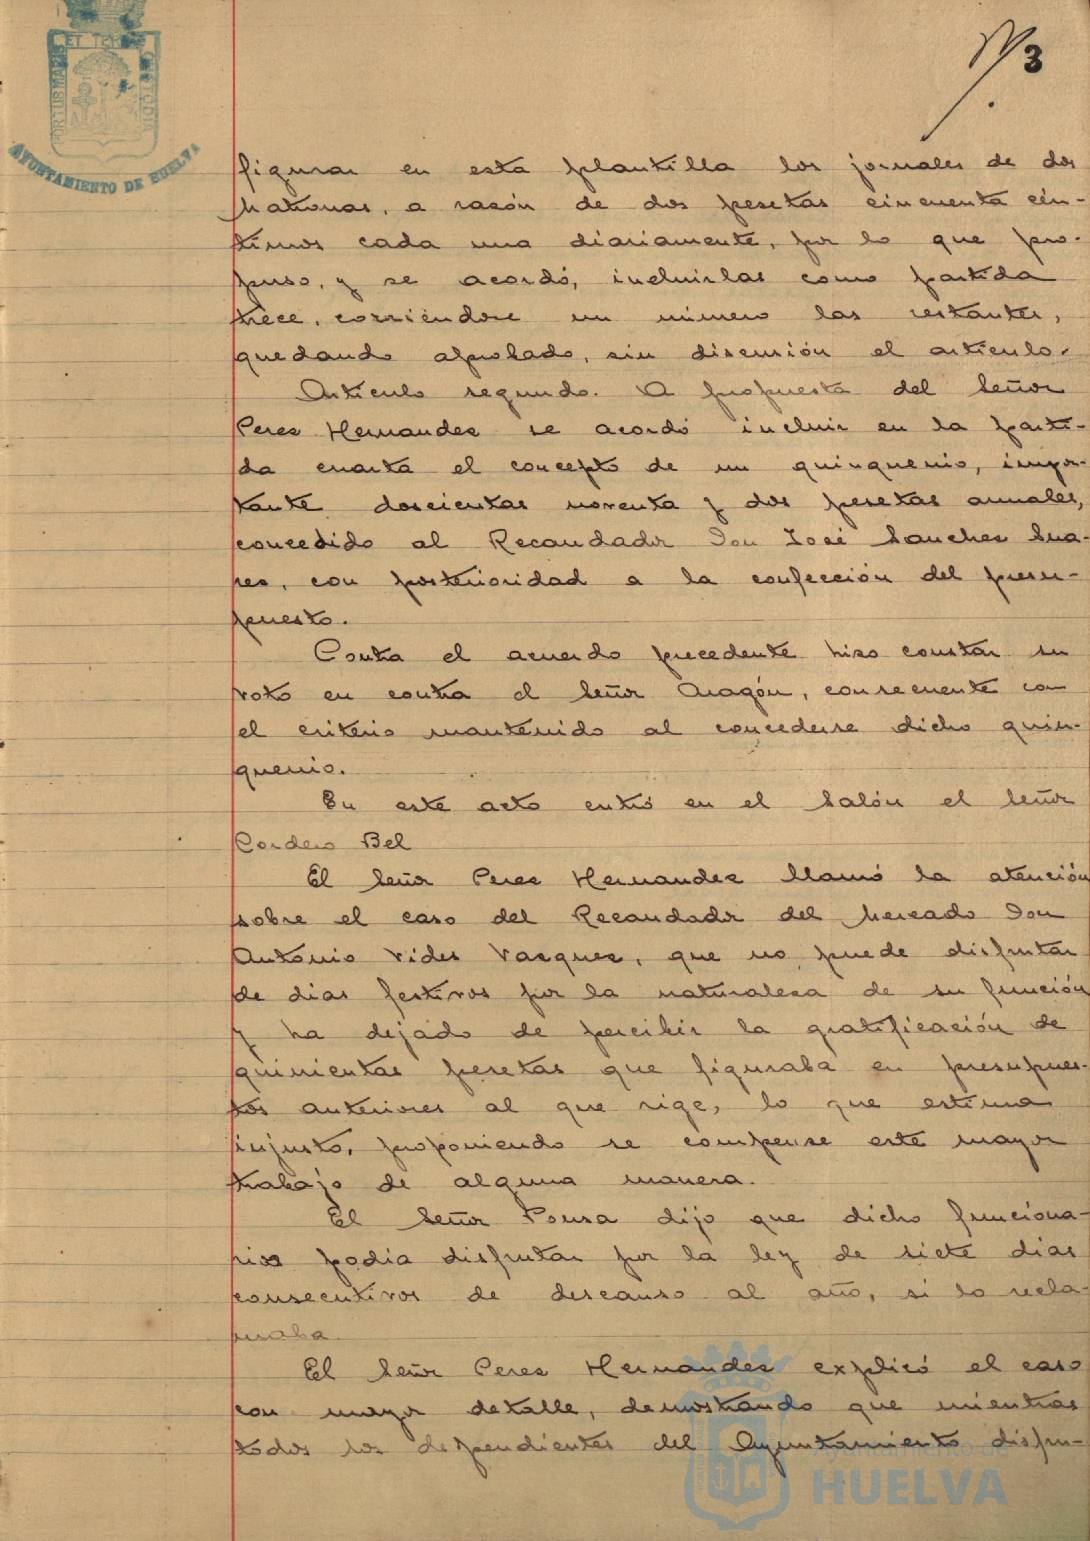 3
PORTUS MARIS ET TERRE CUSTODIA
AYUNTAMIENTO DE HUELVA
figurar en esta plantilla los jornales de dos
Matronas, a razón de dos pesetas cincuenta cén-
timos cada una diariamente, por lo que pro-
puso, y se acordó, incluirlas como partida
trece, corriéndose un número las restantes,
quedando aprobado, sin discusión el artículo.
Artículo segundo. A propuesta del Señor
Peres Hernandez se acordó incluir en la parti-
da cuarta el concepto de un quinquenio, impor-
tante doscientas noventa y dos pesetas anuales,
concedido al Recaudador Don José Sanches Sua-
res, con posterioridad a la confección del presu-
puesto.
Contra el acuerdo precedente hizo constar su
voto en contra el Señor Aragón, consecuente con
el criterio mantenido al concederse dicho quin-
quenio.
En este acto entró en el Salón el Señor
Cordero Bel
El Señor Peres Hernandez llamó la atención
sobre el caso del Recaudador del Mercado Don
Antonio Vides Vasquez, que no puede disfrutar
de dias festivos por la naturaleza de su función
y ha dejado de percibir la gratificación de
quinientas pesetas que figuraba en presupues-
tos anteriores al que rige, lo que estima
injusto, proponiendo se compense este mayor
trabajo de alguna manera.
El Señor Ponsa dijo que dicho funciona-
rio podia disfrutar por la ley de siete dias
consecutivos de descanso al año, si lo recla-
maba.
El Señor Peres Hernandez explicó el caso
con mayor detalle, demostrando que mientras
todos los dependientes del Ayuntamiento disfru-
Ayuntamiento de
HUELVA